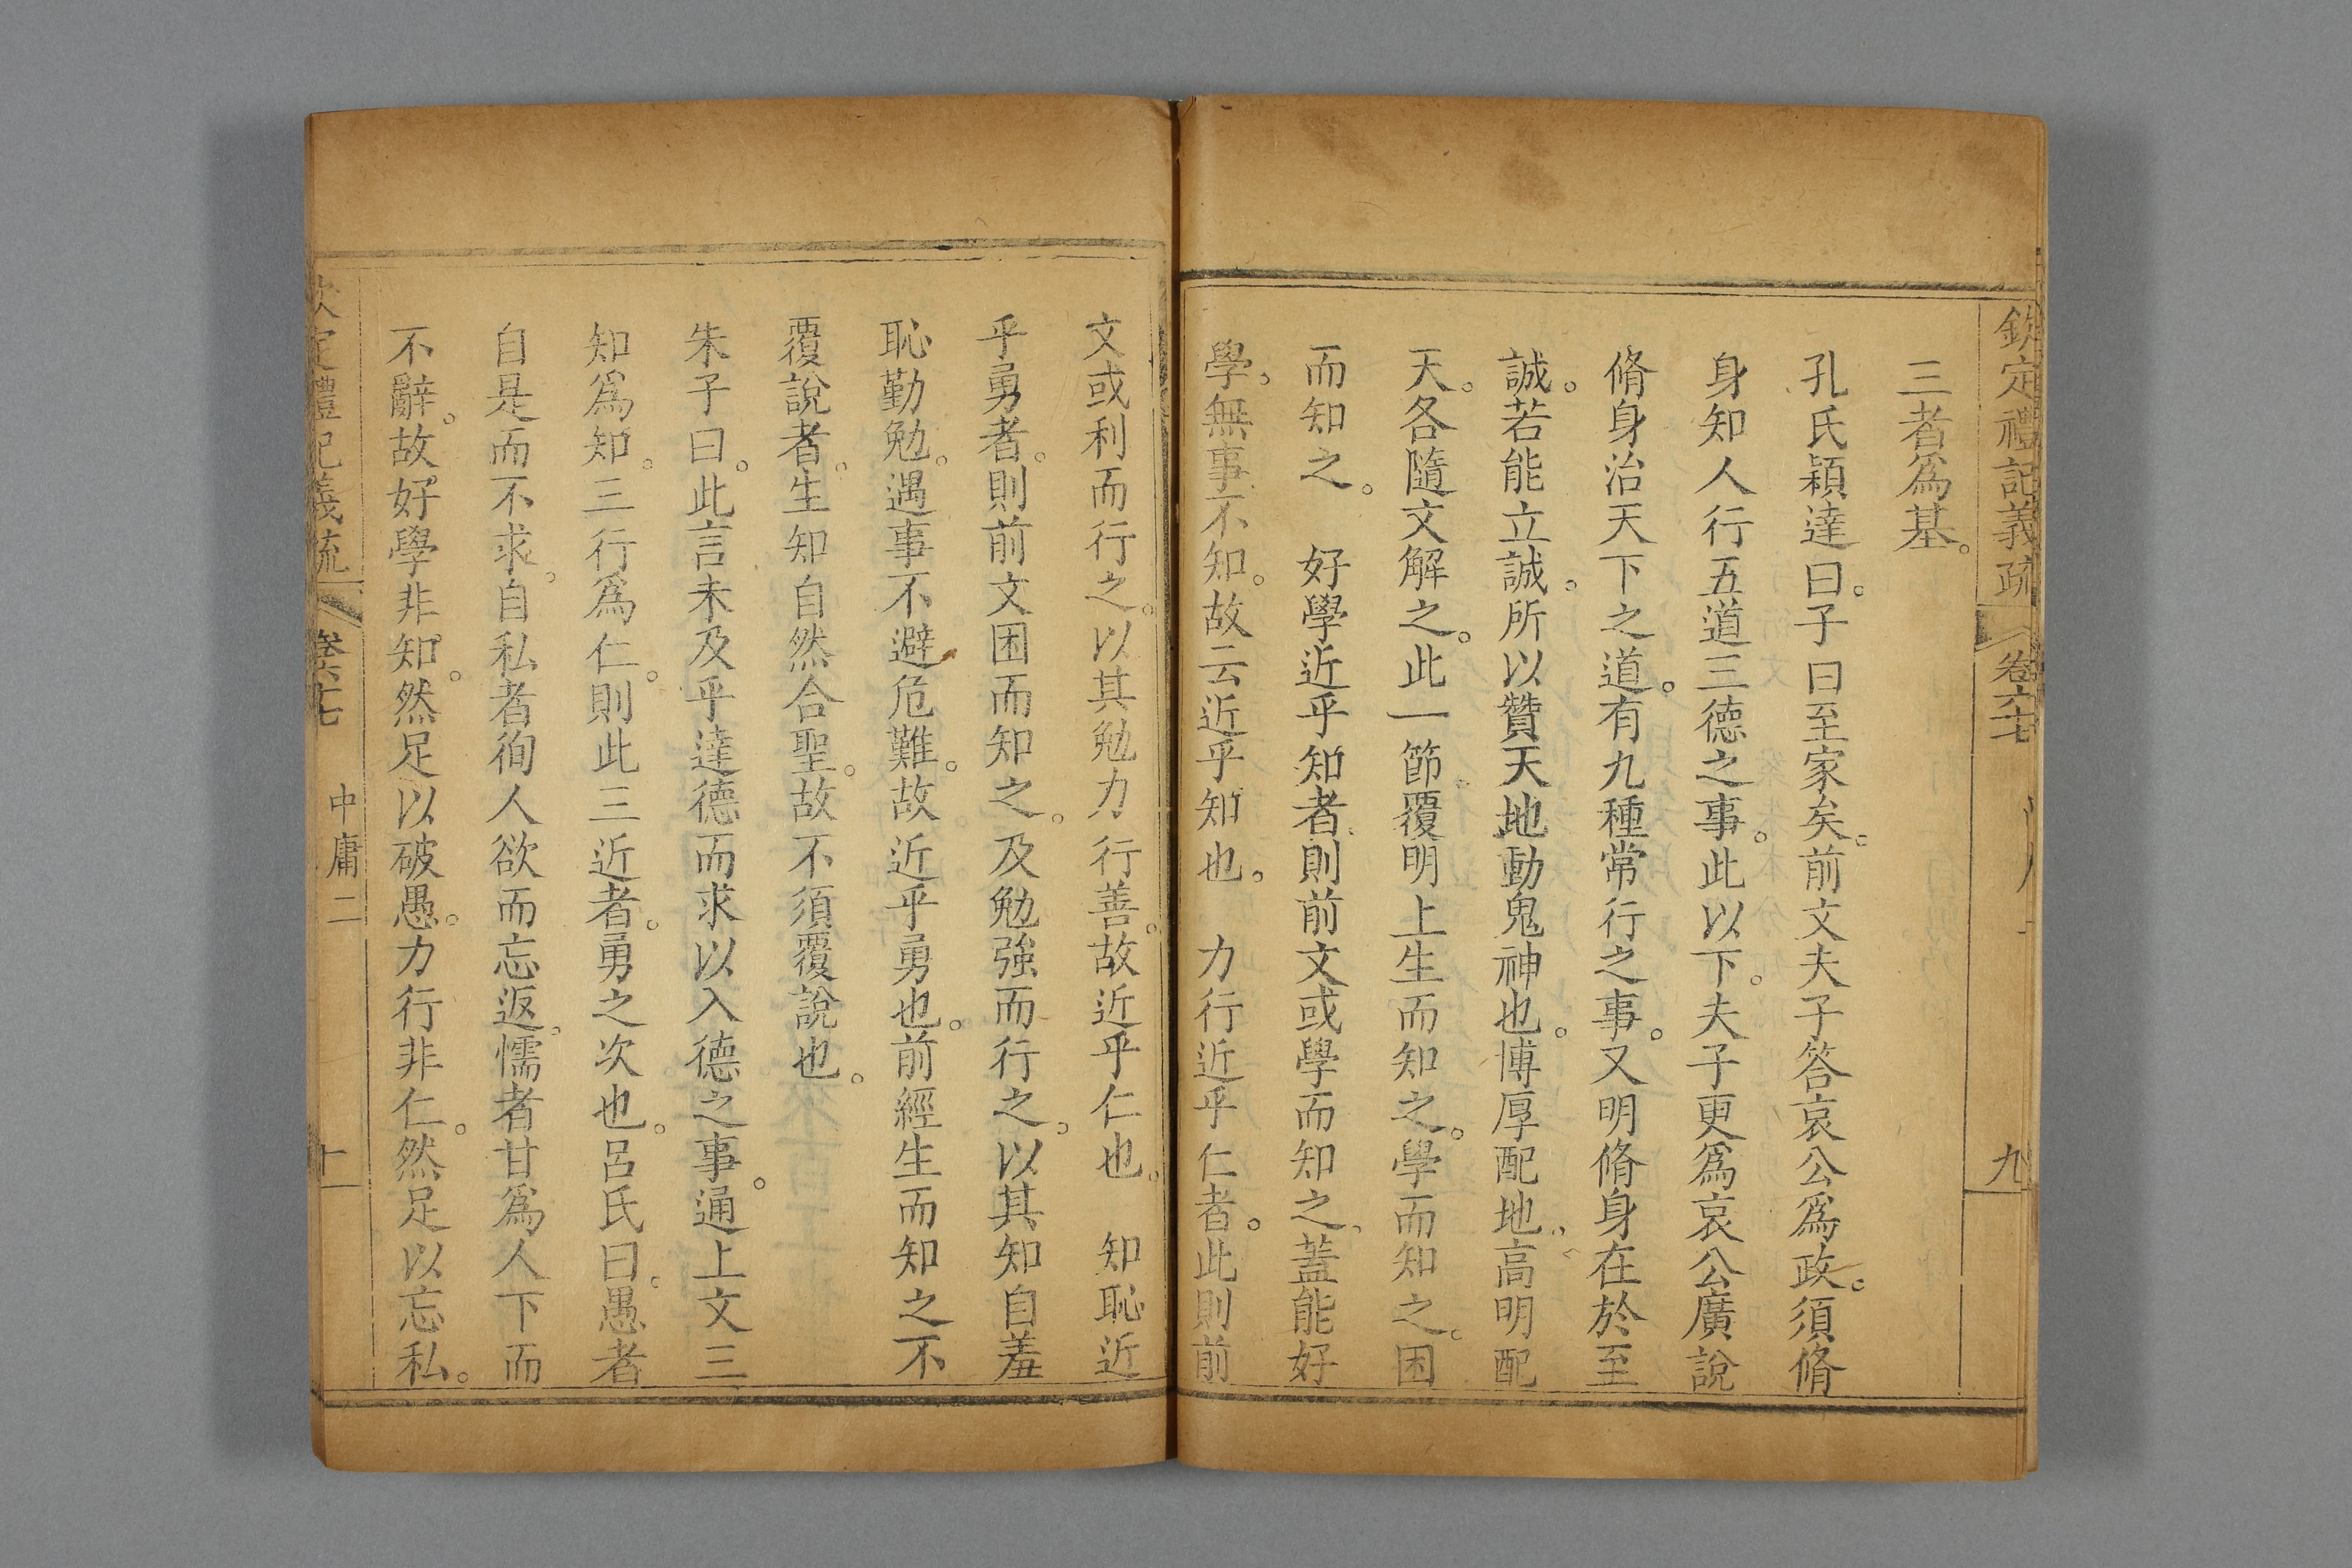 欽定禮記義疏 卷六七 九
三者爲基。
孔氏穎達曰。子曰至家矣。前文夫子答哀公爲政。須脩
身知人行五道三德之事。此以下。夫子更爲哀公廣說
脩身治天下之道。有九種常行之事。又明脩身在於至
誠。若能立誠。所以贊天地動鬼神也。博厚配地。高明配
天。各隨文解之。此一節。覆明上生而知之。學而知之。困
而知之。 好學近乎知者。則前文或學而知之、蓋能好
學。無事不知。故云近乎知也。 力行近乎仁者。此則前
文或利而行之。以其勉力行善。故近乎仁也。 知恥近
乎勇者。則前文困而知之。及勉強而行之。以其知自羞
恥勤勉。遇事不避危難。故近乎勇也。前經生而知之不
覆說者。生知自然合聖。故不須覆說也。
朱子曰。此言未及乎達德而求以入德之事。通上文三
知爲知。三行爲仁。則此三近者。勇之次也。呂氏曰。愚者
自是而不求。自私者徇人欲而忘返。懦者甘爲人下而
不辭。故好學非知。然足以破愚。力行非仁。然足以忘私。
定禮記義疏 卷六七 中庸二